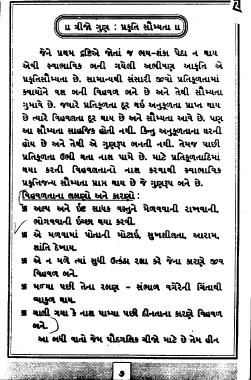 ॥ ત્રીજો ગુણ : પ્રકૃતિ સૌમ્યતા ॥
જેને પ્રથમ દ્રષ્ટિએ જોતાં જ ભય-શંકા પેદા ન થાય
એવી સ્વાભાવિક બની ગયેલી અભીષણ આકૃતિ એ
પ્રકૃતિસૌમ્યતા છે. સામાન્યથી સંસારી જીવો પ્રતિકૂળતામાં
ક્યાંયને વશ બની વિહવળ બને છે અને તેથી સૌમ્યતા
ગુમાવે છે. જ્યારે પ્રતિકૂળતા દૂર થઇ અનુકૂળતા પ્રાપ્ત થાય
છે ત્યારે વિહવલતા દૂર થાય છે અને સૌમ્યતા આવે છે. પણ
આ સૌમ્યતા સાહજિક હોતી નથી. કિન્તુ અનુકૂળતાના ઘરની
હોય છે અને તેથી એ ગુણરૂપ બનતી નથી. તેમજ પાછી
પ્રતિકૂળતા ઉભી થતા નાશ પામે છે. માટે પ્રતિકૂળતાદિમાં
થયા કરતી વિહવલતાનો નાશ કરવાથી સ્વાભાવિક
પ્રકૃતિજન્ય સૌમ્યતા પ્રાપ્ત થાય છે જે ગુણરૂપ બને છે.
વિહવળતાના લક્ષણો અને કારણો :
અન્ય અને ઇષ્ટ સાધક વસ્તુને મેળવવાની રાખવાની,
ભોગવવાની ઇચ્છા થયા કરવી.
એ મળવામાં પોતાની મોટાઈ, સુખશીલતા, આરામ,
શાંતિ દેખાય.
એ ન મળે ત્યાં સુધી ઉત્કંઠા રહ્યા કરે જેના કારણે જીવ
વિહવળ બને.
મળ્યા પછી તેના રક્ષણ - સંભાળ વગેરેની ચિંતાથી
વ્યાકુળ થાય.
ચાલી ગયા કે નાશ પામ્યા પછી દીનતાના કારણે વિહવળ
બને.
આ બધી વાતો જેમ પૌદગલિક ચીજો માટે છે તેમ હીન
૭